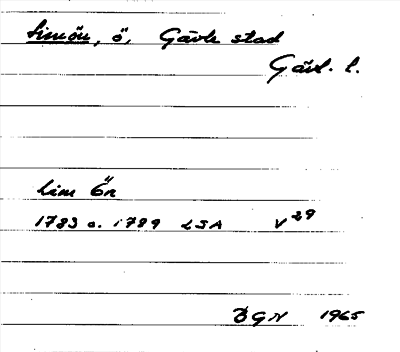 Limön, ö, Gävle stad
Gävl. l.
Lim Ön
1783 o. 1789 LSA V 29
BGN 1965